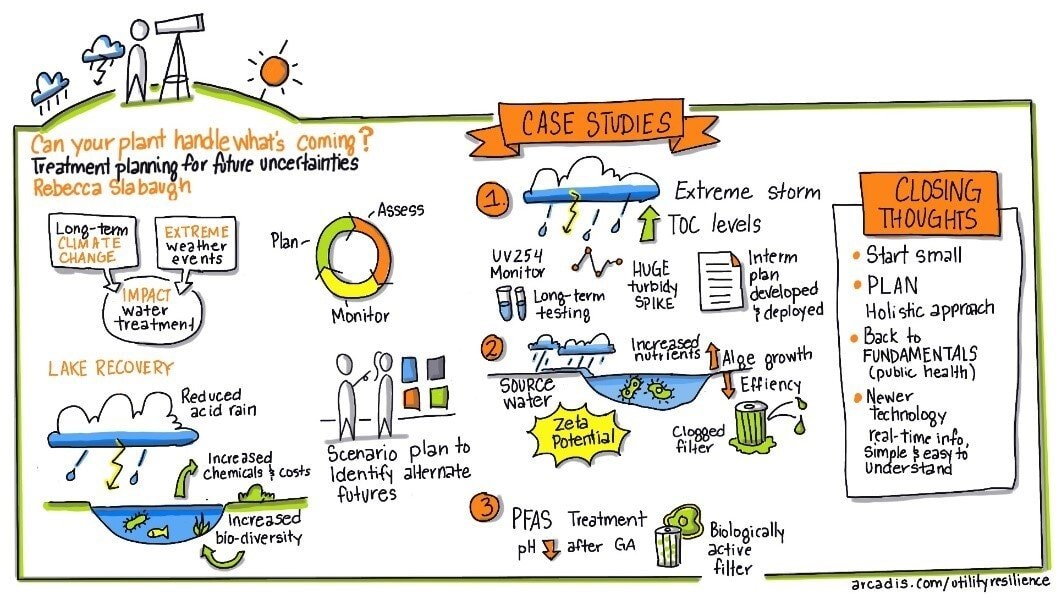 Can your plant handle what's coming?
Treatment planning for future uncertainties
Rebecca Slabaugh
Long-term
CLIMATE
CHANGE
EXTREME
weather
events
IMPACT
water
treatment
Plan
Assess
Monitor
LAKE RECOVERY
Reduced
acid rain
Increased
chemicals & costs
Increased
bio-diversity
Scenario plan to
Identify alternate
futures
CASE STUDIES
1.
Extreme storm
TOC levels
UV254
Monitor
Long-term
testing
HUGE
turbidy
SPIKE
Interm
plan
developed
& deployed
2
Increased
nutrients
Alge growth
Effiency
SOURCE
WATER
Zeta
Potential
Clogged
filter
3
PFAS Treatment
pH after GA
Biologically
active
filter
CLOSING
THOUGHTS
• Start small
• PLAN
Holistic approach
• Back to
FUNDAMENTALS
(public health)
• Newer
technology
real-time info,
Simple & easy to
understand
arcadis.com/utilityresilience